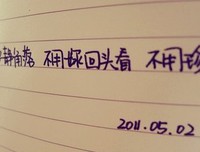 静角落 不用你回头看 不用珍
2011.05.02